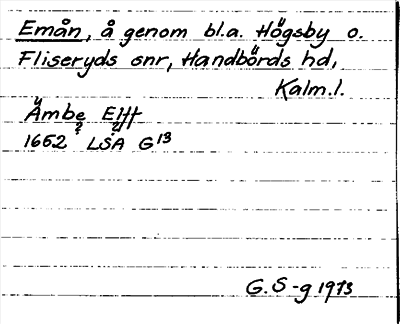 Emån, å genom bl.a. Högsby o.
Fliseryds snr, Handbörds hd,
Kalm.l.
Ämbe Elff
?
1652 LSA G 13
G.S-g 1973